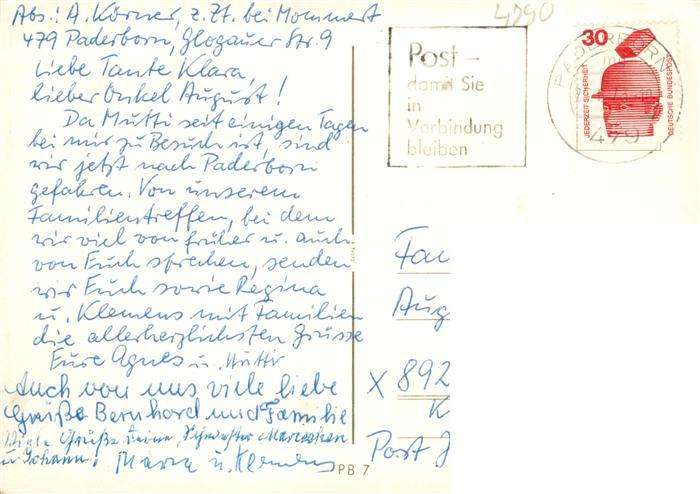 Abs.: A. Körner, z. Zt. bei Mommert
479 Paderborn, Glogauer Str. 9
Liebe Tante Klara,
lieber Onkel August!
Da Mutti seit einigen Tagen
bei mir zu Besuch ist, sind
wir jetzt nach Paderborn
gefahren. Von unserem
Familientreffen, bei dem
wir viel von früher u. auch
von Euch sprechen, senden
wir Euch sowie Regina
u. Klemens mit Familien
die allerherzlichsten Grüsse
Eure Agnes u. Mutti
Auch von uns viele liebe
Grüße Bernhard und Familie
Viele Grüße Deine Schwester
u. Johann. Maria u. Klemens
4290
Post –
damit Sie
in
Verbindung
bleiben
PADERBORN
479
30
JEDERZEIT SICHERHEIT
DEUTSCHE BUNDESPOST
Fam
Aug
X 892
K
Post J
PB 7